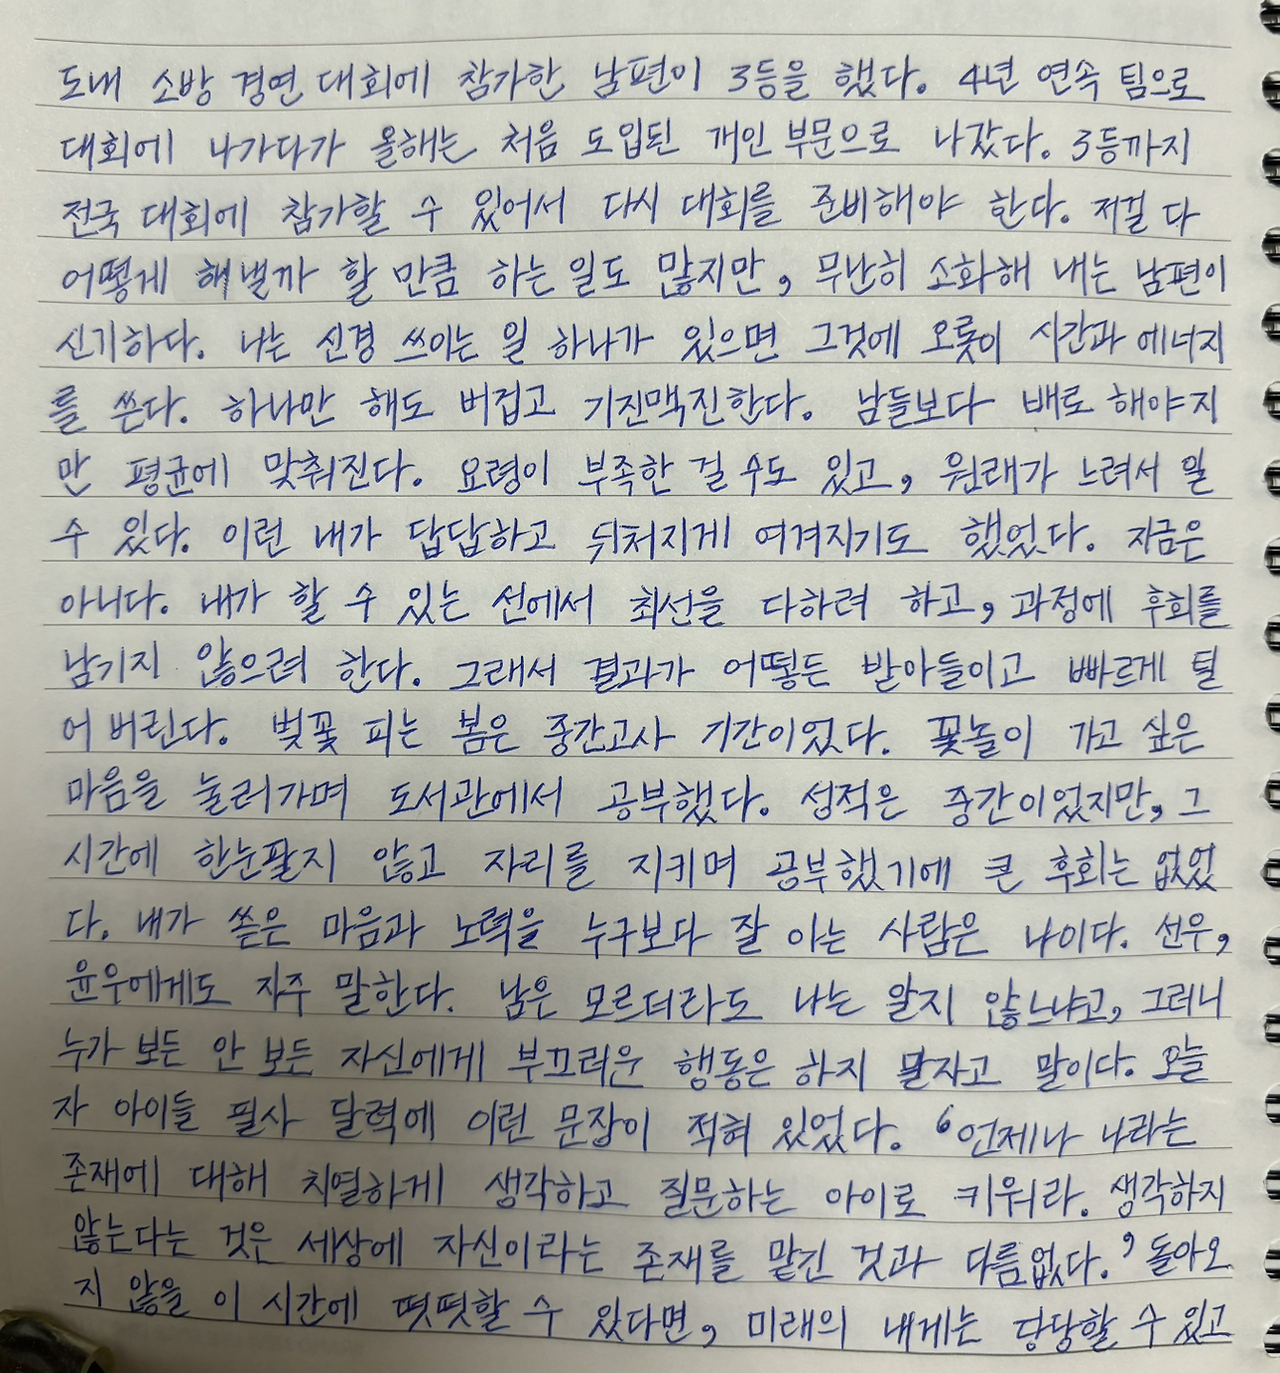 도내 소방 경연 대회에 참가한 남편이 3등을 했다. 4년 연속 팀으로
대회에 나가다가 올해는 처음 도입된 개인 부문으로 나갔다. 3등까지
전국 대회에 참가할 수 있어서 다시 대회를 준비해야 한다. 저걸 다
어떻게 해낼까 할 만큼 하는 일도 많지만, 무난히 소화해 내는 남편이
신기하다. 나는 신경 쓰이는 일 하나가 있으면 그것에 오롯이 시간과 에너지
를 쓴다. 하나만 해도 버겁고 기진맥진한다. 남들보다 배로 해야지
만 평균에 맞춰진다. 요령이 부족한 걸 수도 있고, 원래가 느려서 일
수 있다. 이런 내가 답답하고 뒤처지게 여겨지기도 했었다. 지금은
아니다. 내가 할 수 있는 선에서 최선을 다하려 하고, 과정에 후회를
남기지 않으려 한다. 그래서 결과가 어떻든 받아들이고 빠르게 털
어 버린다. 벚꽃 피는 봄은 중간고사 기간이었다. 꽃놀이 가고 싶은
마음을 눌러가며 도서관에서 공부했다. 성적은 중간이었지만, 그
시간에 한눈팔지 않고 자리를 지키며 공부했기에 큰 후회는 없었
다. 내가 쏟은 마음과 노력을 누구보다 잘 아는 사람은 나이다. 선우,
윤우에게도 자주 말한다. 남은 모르더라도 나는 알지 않느냐고, 그러니
누가 보든 안 보든 자신에게 부끄러운 행동은 하지 말자고 말이다. 오늘
자 아이들 필사 달력에 이런 문장이 적혀 있었다. ‘언제나 나라는
존재에 대해 치열하게 생각하고 질문하는 아이로 키워라. 생각하지
않는다는 것은 세상에 자신이라는 존재를 맡긴 것과 다름없다.’ 돌아오
지 않을 이 시간에 떳떳할 수 있다면, 미래의 내게는 당당할 수 있고